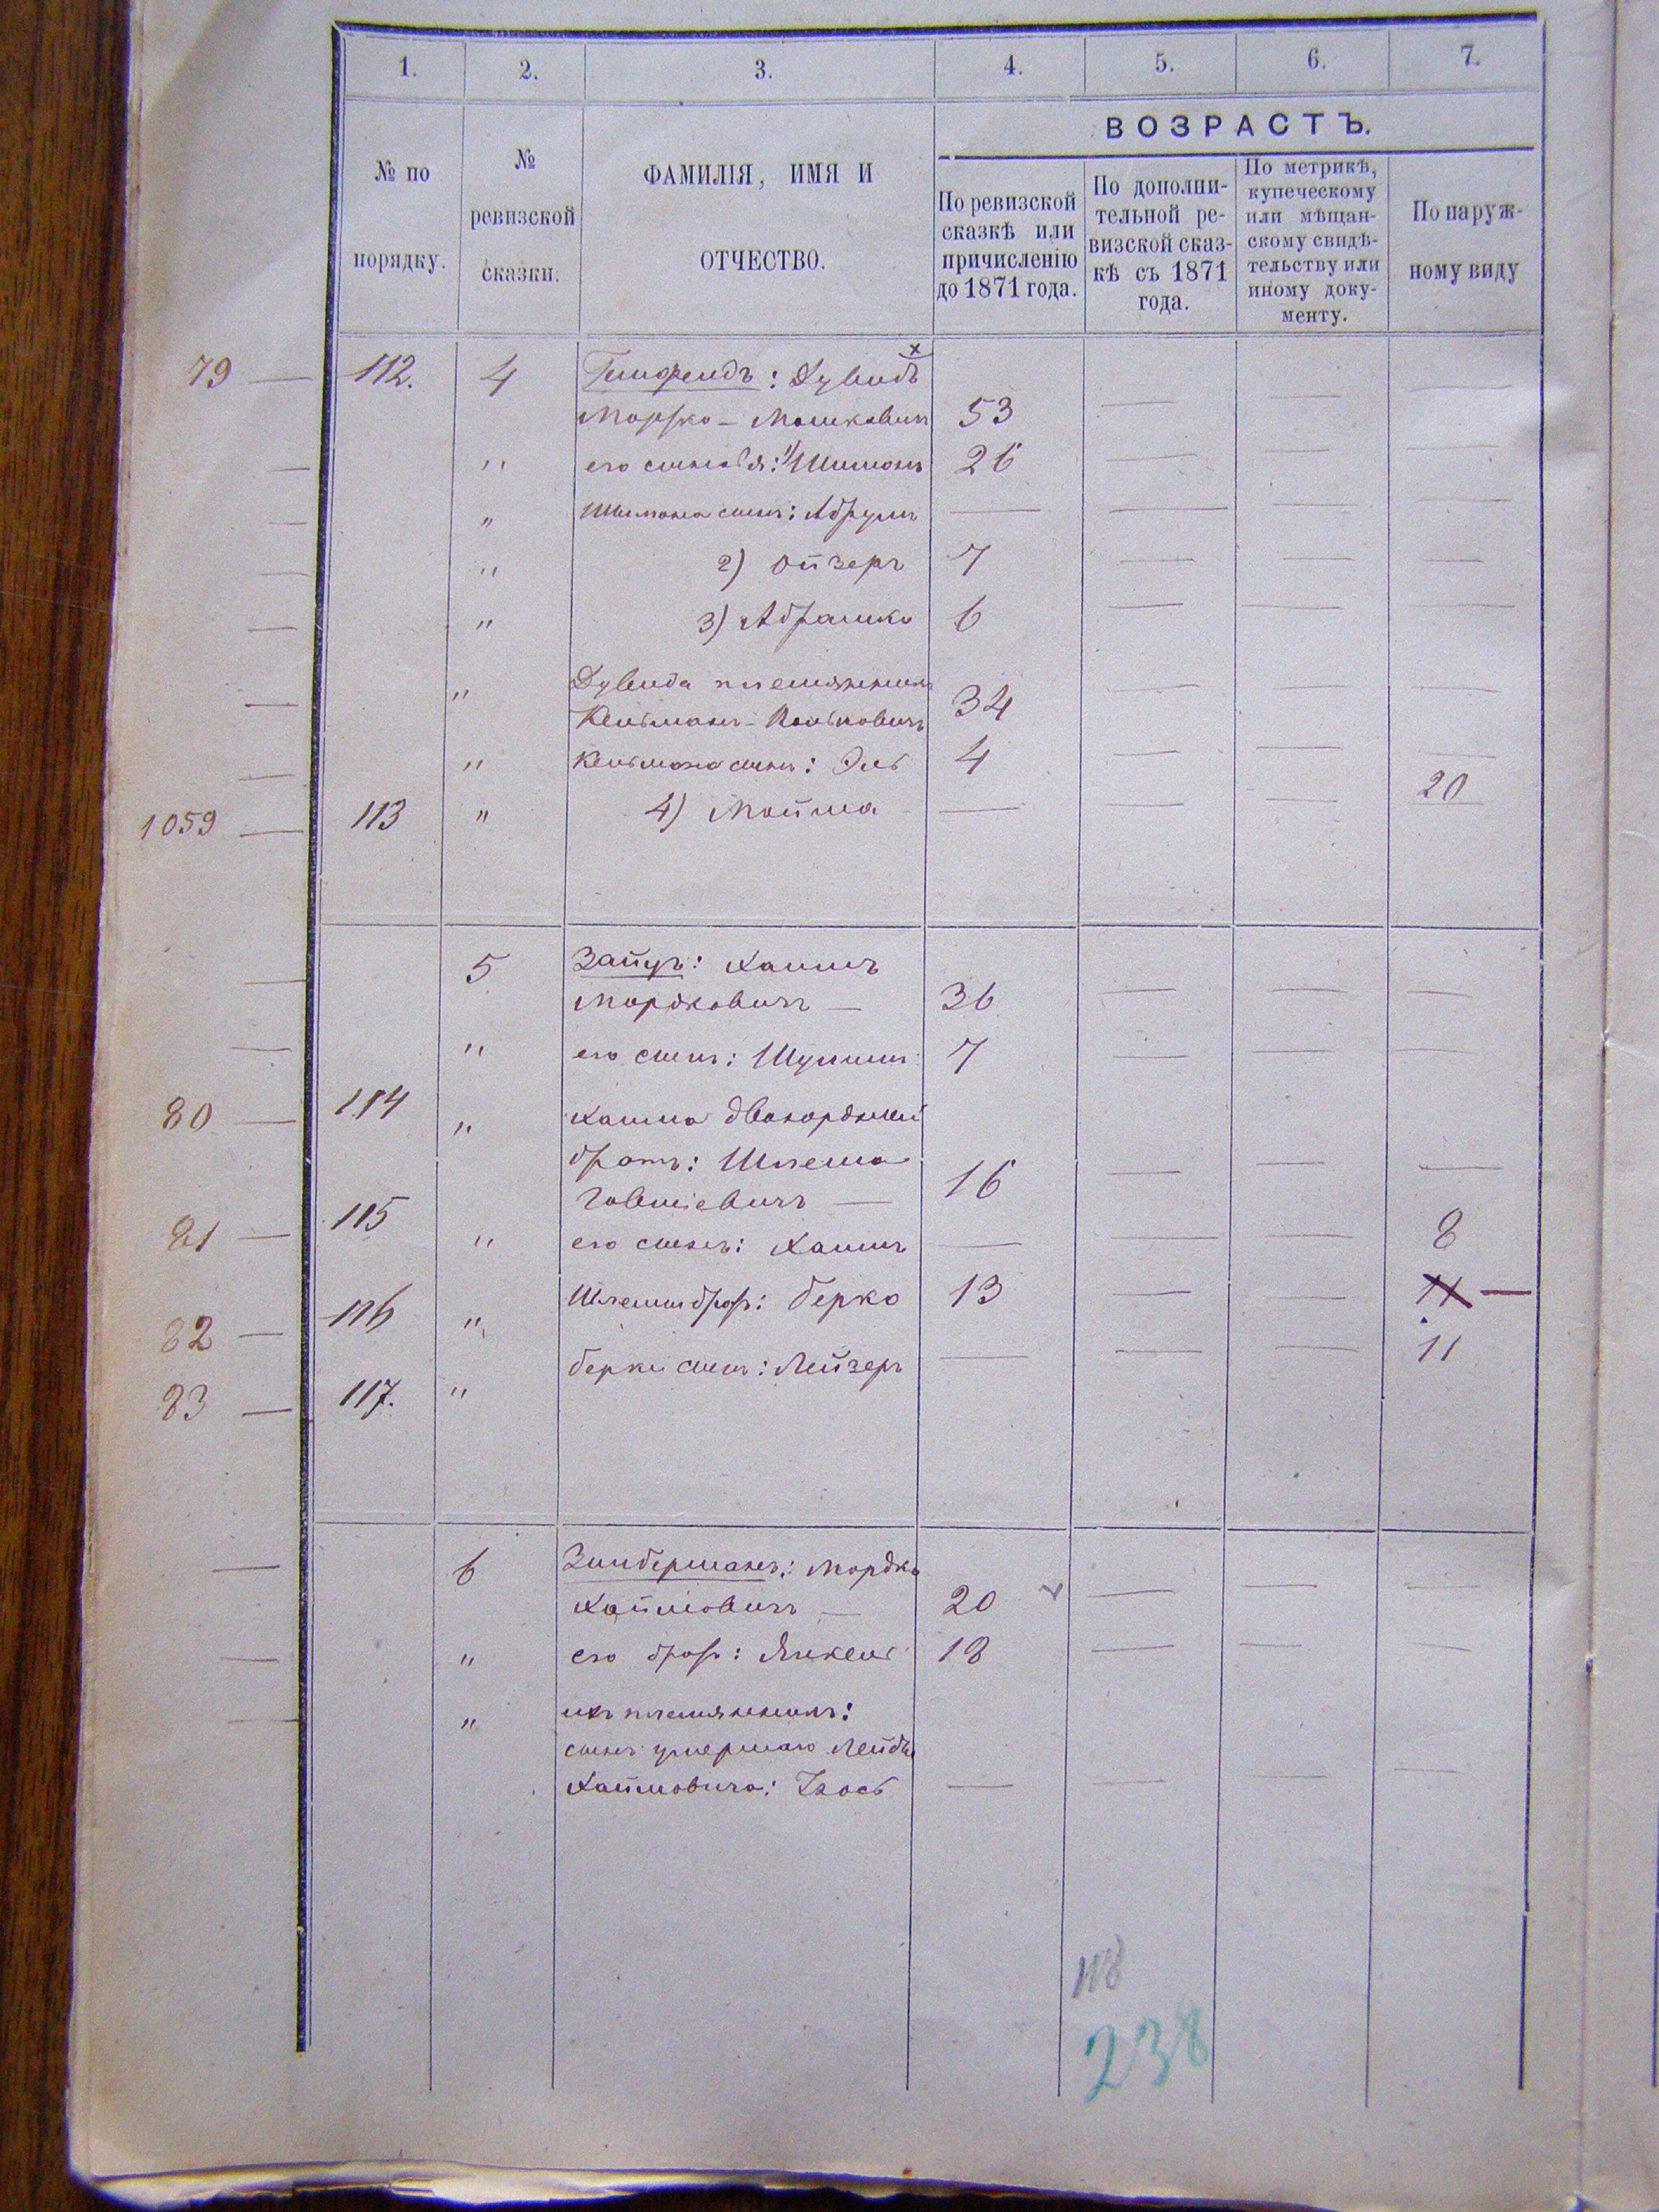 1. 2. 3. 4. 5. 6. 7.
ВОЗРАСТЪ.
№ по
порядку.
№
ревизской
сказки.
ФАМИЛІЯ, ИМЯ И
ОТЧЕСТВО.
По ревизской
сказкѣ или
причисленію
до 1871 года.
По дополни-
тельной ре-
визской сказ-
кѣ съ 1871
года.
По метрикѣ,
купеческому
или мѣщан-
скому свидѣ-
тельству или
иному доку-
менту.
По наруж-
ному виду
79 — 112. 4 : Дувидъ
Морѕко - Мошковичъ 53 — — —
— " его сыновья: 1) Шимонъ 26 — — —
— " Шимона сынъ: Абрумъ — — — —
— " 2) Ойзеръ 7 — — —
— " 3) Абрашко 6 — — —
— " Дувида племянникъ
Кельманъ - 34 — — —
— " Кельмана сынъ: Эль 4 — — —
1059 — 113 " 4) Мойша — — — 20
— 5 Зайцъ: Хаимъ
Мордковичъ — 36 — — —
— " его сынъ: Шулимъ 7 — — —
80 — 114 " Хаима двоюродный
братъ: Шлема
Говшіевичъ — 16 — — —
81 — 115 " его сынъ: Хаимъ — — — 8
82 — 116 " Шлемы братъ: Берко 13 — — 11 —
83 — 117. " Берки сынъ: Лейзеръ — — — 11
— 6 Зильберманъ: Мордко
Хаймовичъ — 20 — — —
— " его братъ: Янкель 18 — — —
— " ихъ племянникъ:
сынъ умершаго Лейбы
Хаймовича: Іось — — — —
118
238